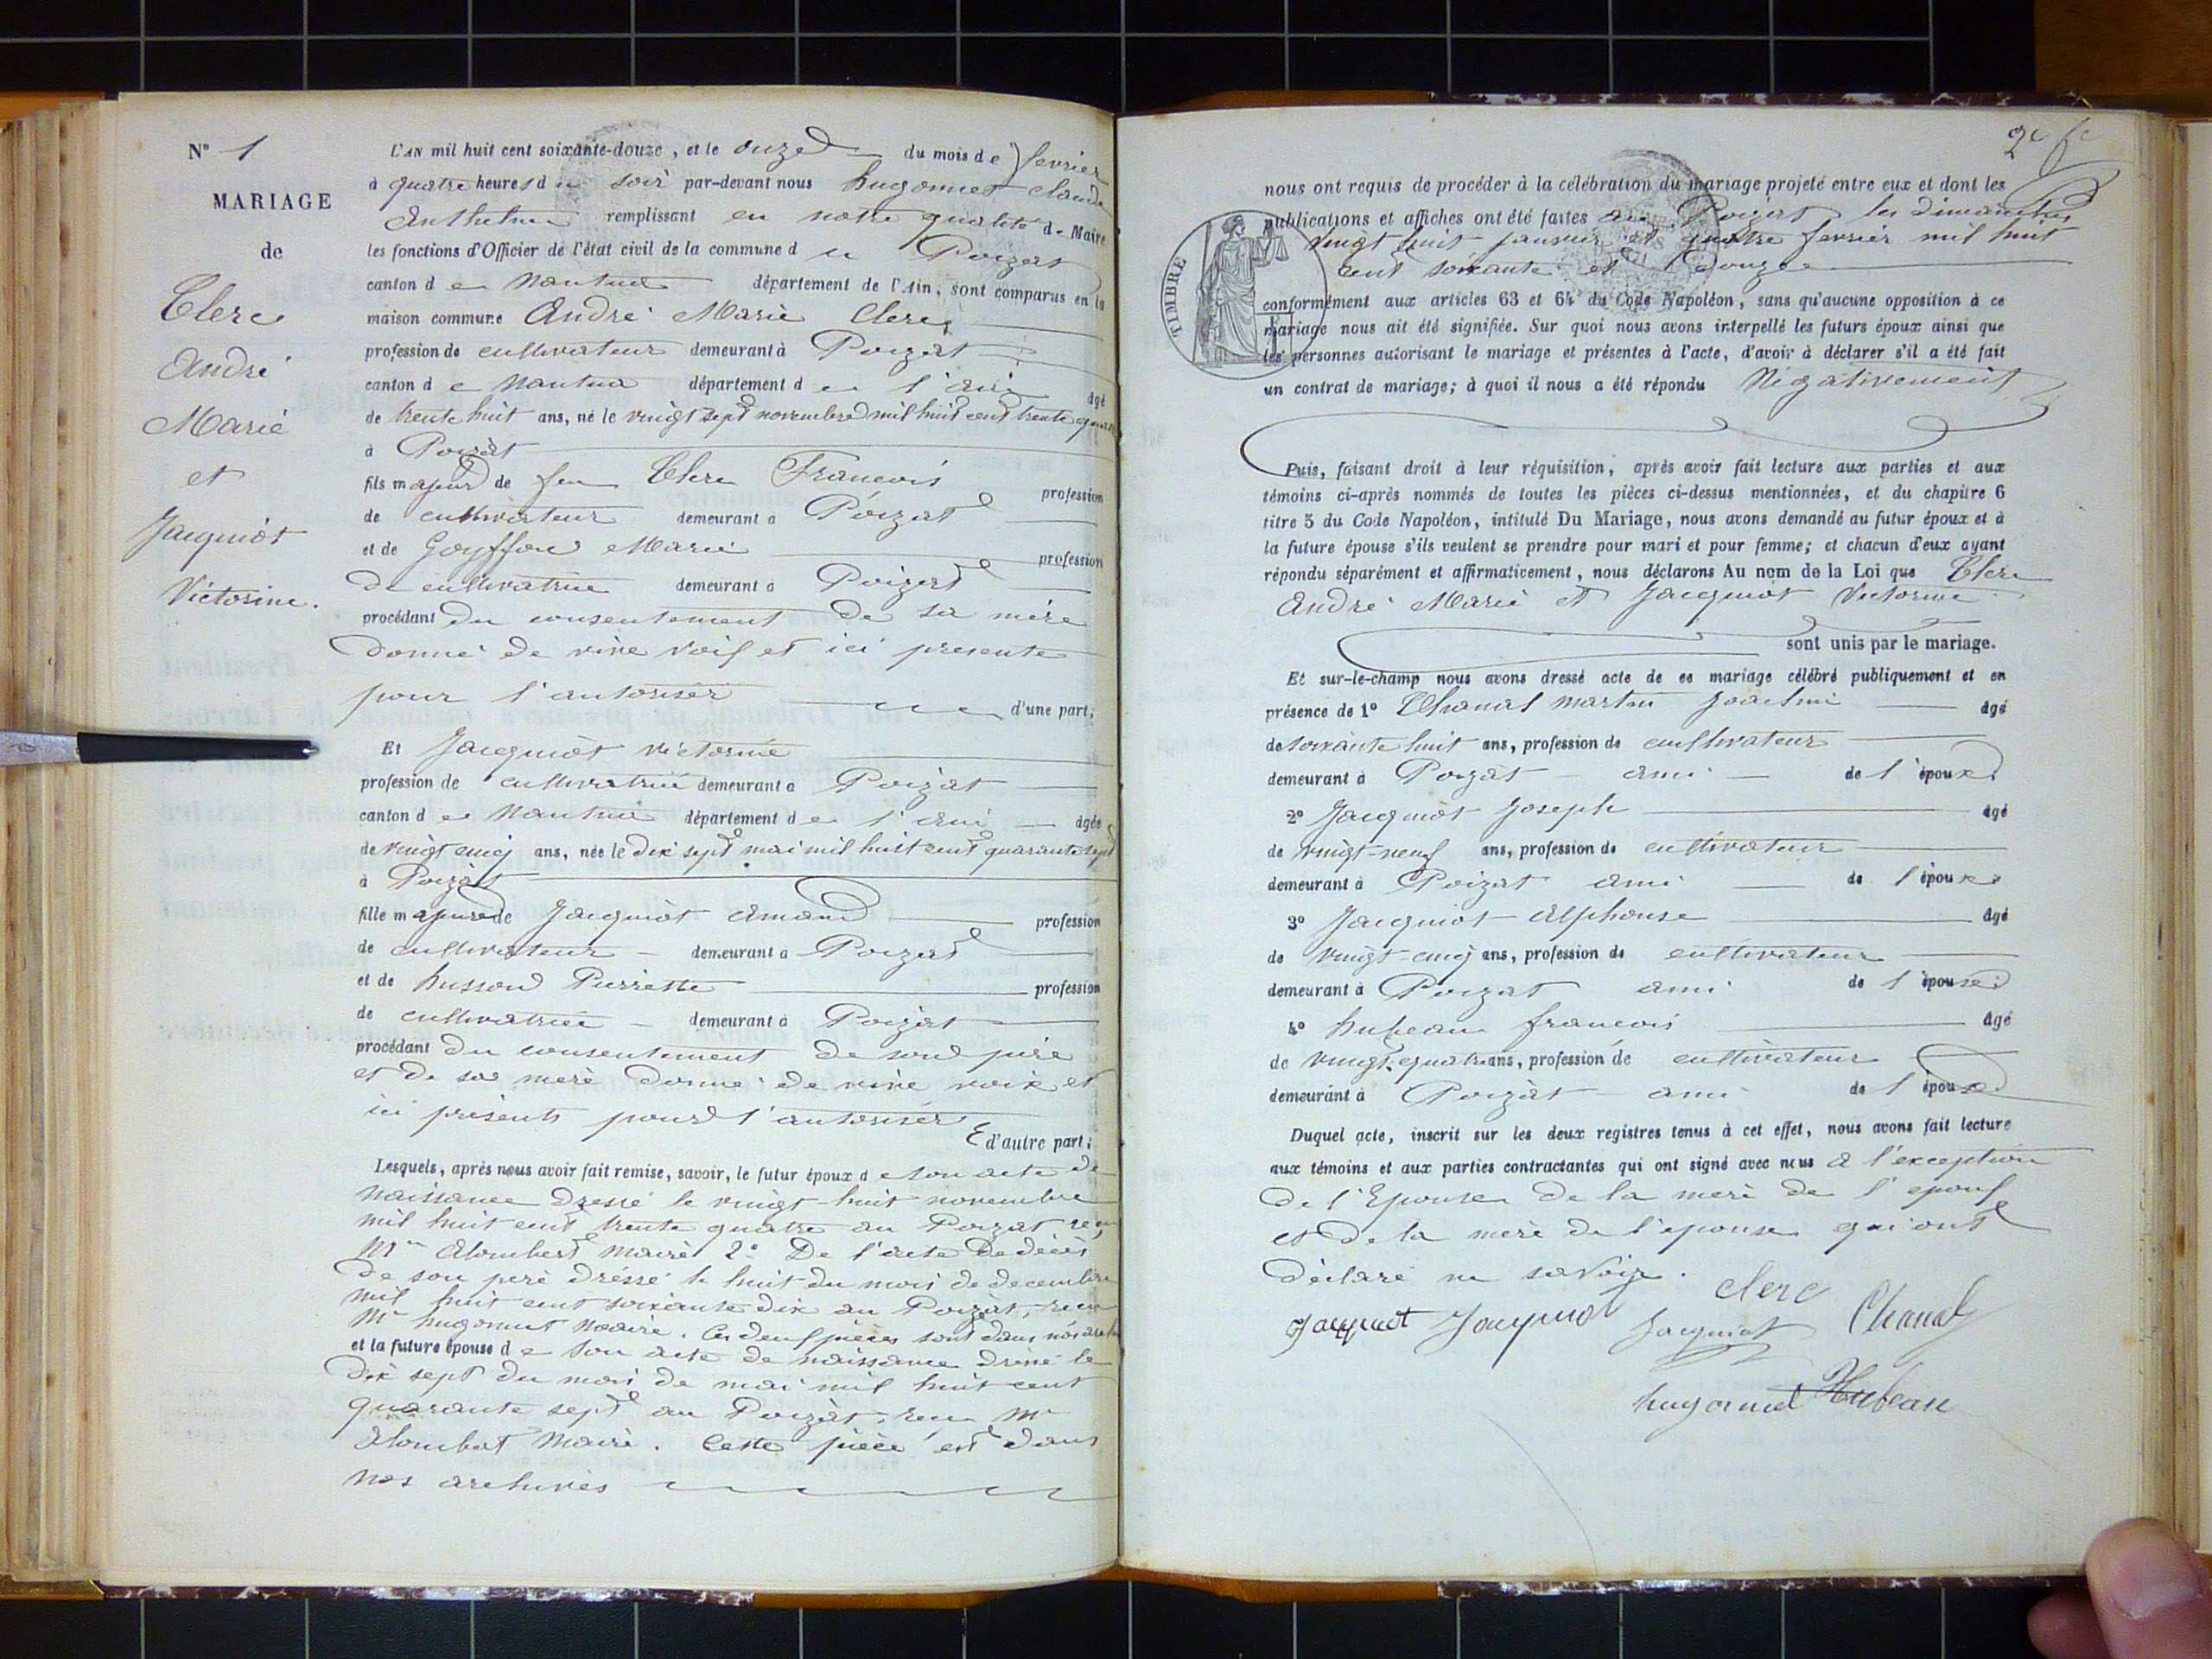 N° 1
MARIAGE
de
Clerc
André
Marie
et
Jacquiot
Victorine.
L'AN mil huit cent soixante-douze, et le onze du mois de fevrier
à quatre heures du soir par-devant nous hugonnet claude
Anthelme remplissant en notre qualité de Maire
les fonctions d'Officier de l'état civil de la commune du Poizat
canton de Nantua département de l'Ain, sont comparus en la
maison commune André Marie Clerc
profession de cultivateur demeurant à Poizat
canton de Nantua département de l'ain âgé
de trente huit ans, né le vingt sept novembre mil huit cent trente quatre
à Poizat
fils majeur de feu Clerc Francois profession
de cultivateur demeurant à Poizat
et de Goyffon Marie profession
de cultivatrice demeurant à Poizat
procédant du consentement de sa mère
donné de vive voix et ici presente
pour l'autoriser d'une part;
Et Jacquiot victorine
profession de cultivatrice demeurant à Poizat
canton de Nantua département de l'ain âgée
de vingt cinq ans, née le dix sept mai mil huit cent quarante sept
à Poizat
fille majeure de Jacquiot Amand profession
de cultivateur demeurant à Poizat
et de husson Pierrette profession
de cultivatrice demeurant à Poizat
procédant du consentement de son père
et de sa merè donné de vive voix et
ici présents pour l'autoriser
d'autre part;
Lesquels, après nous avoir fait remise, savoir, le futur époux de son acte de
naissance dressé le vingt-huit novembre
mil huit cent trente quatre au Poizat reçu
Mr Alombert maire 2° De l'acte de décès
de son perè dréssé le huit du mois de decembre
mil huit cent soixante dix au Poizat, reçu
Mr hugonnet Maire. Ces deux pièces sont dans nos
et la future épouse de son acte de naissance dressé le
dix sept du mois de mai mil huit cent
quarante sept au Poizat, reçu Mr
alombert Maire. Cette pièce est dans
nos archives
2e fe
nous ont requis de procéder à la célébration du mariage projeté entre eux et dont les
publications et affiches ont été faites au Poizat les dimanches
vingt huit janvier et quatre fevrier mil huit
cent soixante et douze
TIMBRE
conformément aux articles 63 et 64 du Code Napoléon, sans qu'aucune opposition à ce
mariage nous ait été signifiée. Sur quoi nous avons interpellé les futurs époux ainsi que
les personnes autorisant le mariage et présentes à l'acte, d'avoir à déclarer s'il a été fait
un contrat de mariage; à quoi il nous a été répondu Négativement
Puis, faisant droit à leur réquisition, après avoir fait lecture aux parties et aux
témoins ci-après nommés de toutes les pièces ci-dessus mentionnées, et du chapitre 6
titre 5 du Code Napoléon, intitulé Du Mariage, nous avons demandé au futur époux et à
la future épouse s'ils veulent se prendre pour mari et pour femme; et chacun d'eux ayant
répondu séparément et affirmativement, nous déclarons Au nom de la Loi que Clerc
André Marie et Jacquiot Victorine
sont unis par le mariage.
Et sur-le-champ nous avons dressé acte de ce mariage célébré publiquement et en
présence de 1° Chanal martin Joachim âgé
de soixante huit ans, profession de cultivateur
demeurant à Poizat ami de l'époux
2° Jacquiot Joseph âgé
de vingt-neuf ans, profession de cultivateur
demeurant à Poizat ami de l'époux
3° Jacquiot Alphonse âgé
de vingt-cinq ans, profession de cultivateur
demeurant à Poizat ami de l'épouse
4° hubeau francois âgé
de vingt-quatre ans, profession de cultivateur
demeurant à Poizat ami de l'épouse
Duquel acte, inscrit sur les deux registres tenus à cet effet, nous avons fait lecture
aux témoins et aux parties contractantes qui ont signé avec nous à l'exception
de l'Epouse de la merè de l'epoux
et de la merè de l'epouse qui ont
déclaré ne savoir.
clerc
Jacquiot Jacquiot Jacquiot Chanal
hugonnet Hubeau